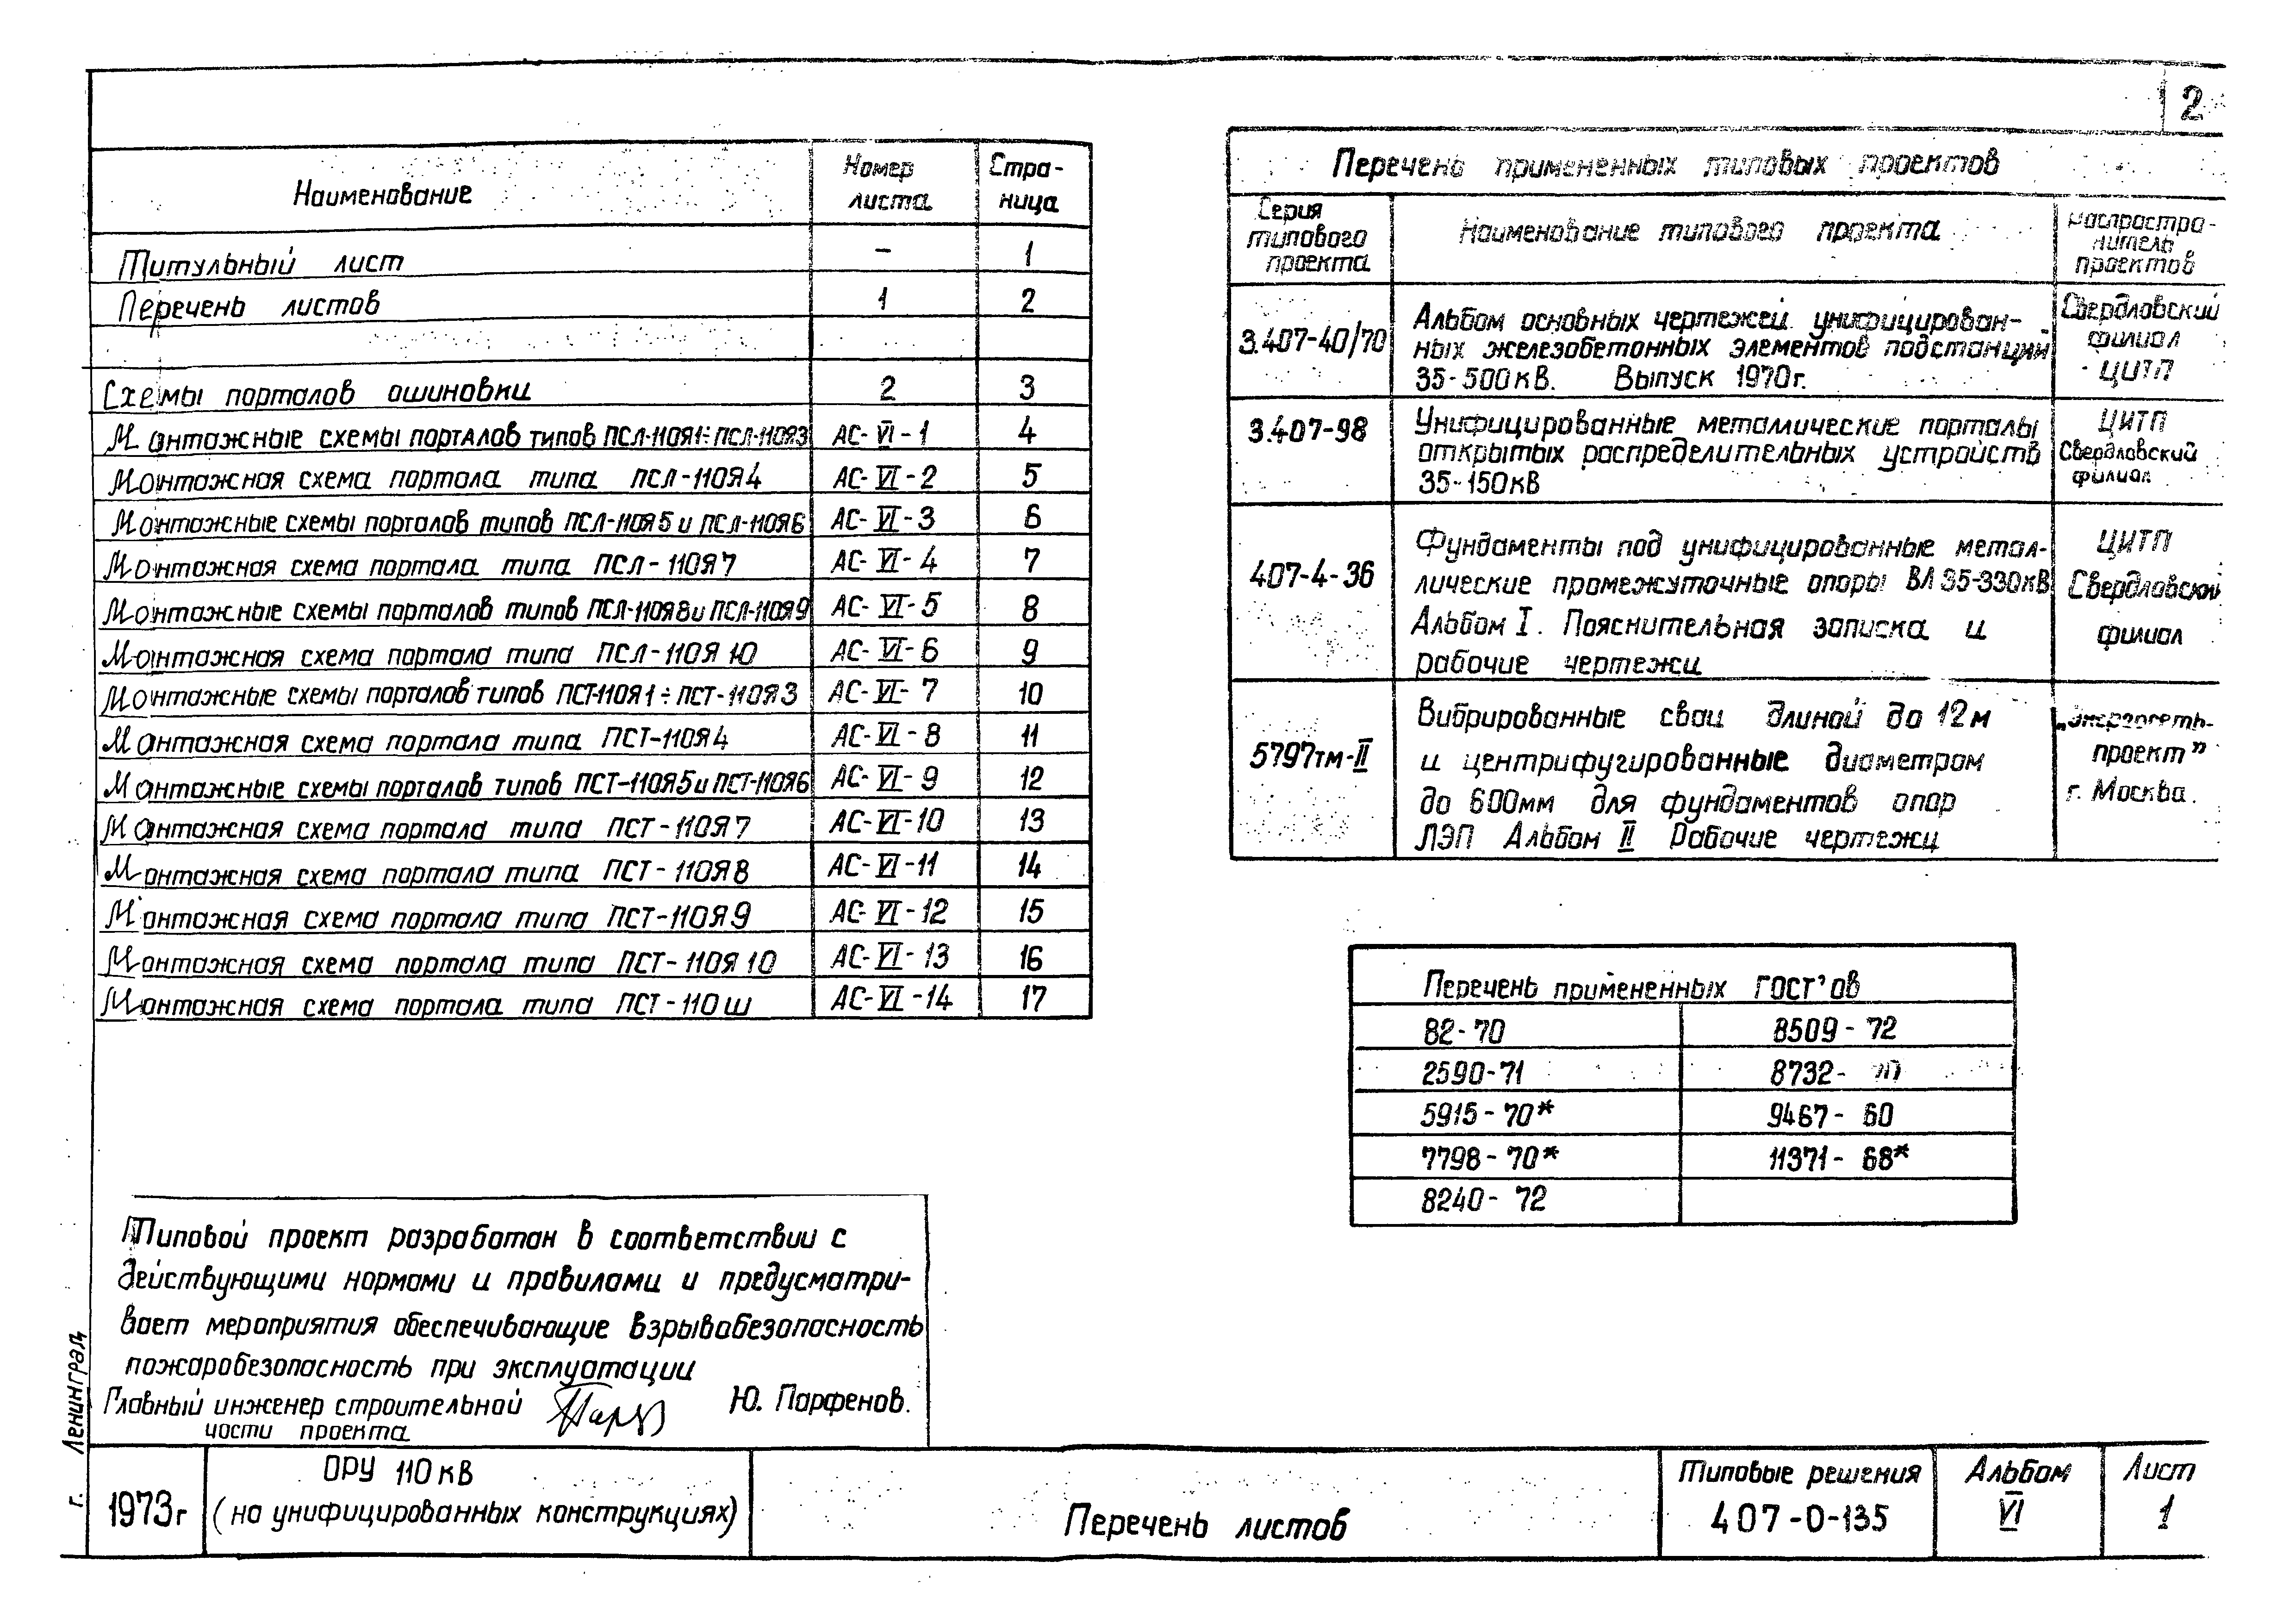 2
Наименование Номер листа Стра-ница
Титульный лист – 1
Перечень листов 1 2
Схемы порталов ошиновки 2 3
Монтажные схемы порталов типов ПСЛ-110Я1÷ПСЛ-110Я3 АС-VI-1 4
Монтажная схема портала типа ПСЛ-110Я4 АС-VI-2 5
Монтажные схемы порталов типов ПСЛ-110Я5 и ПСЛ-110Я6 АС-VI-3 6
Монтажная схема портала типа ПСЛ-110Я7 АС-VI-4 7
Монтажные схемы порталов типов ПСЛ-110Я8 и ПСЛ-110Я9 АС-VI-5 8
Монтажная схема портала типа ПСЛ-110Я10 АС-VI-6 9
Монтажные схемы порталов типов ПСТ-110Я1÷ПСТ-110Я3 АС-VI-7 10
Монтажная схема портала типа ПСТ-110Я4 АС-VI-8 11
Монтажные схемы порталов типов ПСТ-110Я5 и ПСТ-110Я6 АС-VI-9 12
Монтажная схема портала типа ПСТ-110Я7 АС-VI-10 13
Монтажная схема портала типа ПСТ-110Я8 АС-VI-11 14
Монтажная схема портала типа ПСТ-110Я9 АС-VI-12 15
Монтажная схема портала типа ПСТ-110Я10 АС-VI-13 16
Монтажная схема портала типа ПСТ-110Ш АС-VI-14 17
Перечень примененных типовых проектов
Серия типового проекта Наименование типового проекта Распростра-нитель проектов
3.407-40/70
Альбом основных чертежей унифицирован-
ных железобетонных элементов подстанции
35-500кВ. Выпуск 1970г.
Свердловский
филиал
ЦИТП
3.407-98
Унифицированные металлические порталы
открытых распределительных устройств
35-150кВ
ЦИТП
Свердловский
филиал
407-4-36
Фундаменты под унифицированные метал-
лические промежуточные опоры ВЛ 35-330кВ
Альбом I. Пояснительная записка и
рабочие чертежи
ЦИТП
Свердловский
филиал
5797тм-II
Вибрированные сваи длиной до 12м
и центрифугированные диаметром
до 600мм для фундаментов опор
ЛЭП Альбом II Рабочие чертежи
„Энергосеть-
проект"
г. Москва.
Перечень примененных ГОСТ'ов
82-70 8509-72
2590-71 8732-70
5915-70* 9467-60
7798-70* 11371-68*
8240-72
Типовой проект разработан в соответствии с
действующими нормами и правилами и предусматри-
вает мероприятия обеспечивающие взрывобезопасность
пожаробезопасность при эксплуатации
Главный инженер строительной
части проекта
Ю. Парфенов.
г. Ленинград
1973г
ОРУ 110кВ
(на унифицированных конструкциях)
Перечень листов
Типовые решения
407-0-135
Альбом
VI
Лист
1